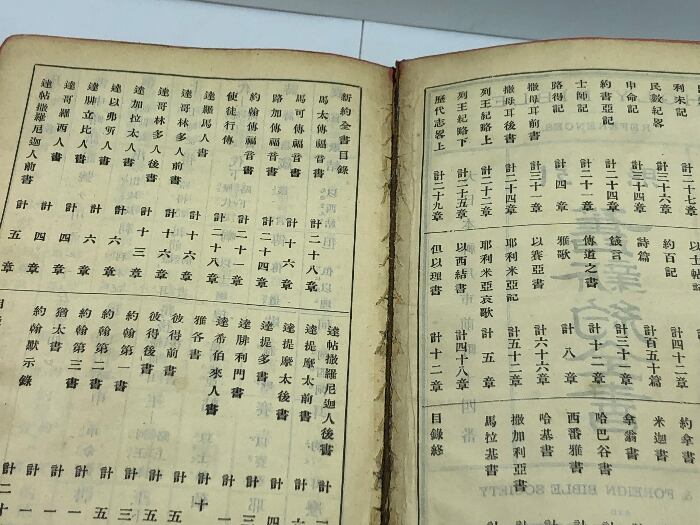 利未記 計二十七章
民數紀畧 計三十六章
申命記 計三十四章
約書亞記 計二十四章
士師記 計二十一章
路得記 計四章
撒母耳前書 計三十一章
撒母耳後書 計二十四章
列王紀略上 計二十二章
列王紀略下 計二十五章
歷代志畧上 計二十九章
以士帖記
約百記 計四十二章
詩篇 計百五十篇
箴言 計三十一章
傳道之書 計十二章
雅歌 計八章
以賽亞書 計六十六章
耶利米亞記 計五十二章
耶利米亞哀歌 計五章
以西結書 計四十八章
但以理書 計十二章
約拿書
米迦書
拿翁書
哈巴谷書
西番雅書
哈基書
撒加利亞書
馬拉基書
目錄終
新約全書目錄
馬太傳福音書 計二十八章
馬可傳福音書 計十六章
路加傳福音書 計二十四章
約翰傳福音書 計二十一章
使徒行傳 計二十八章
達羅馬人書 計十六章
達哥林多人前書 計十六章
達哥林多人後書 計十三章
達加拉太人書 計六章
達以弗所人書 計六章
達腓立比人書 計四章
達哥羅西人書 計四章
達帖撒羅尼迦人前書 計五章
達帖撒羅尼迦人後書 計
達提摩太前書 計
達提摩太後書 計
達提多書 計
達腓利門書 計
達希伯來人書 計十
雅各書 計
彼得前書 計五
彼得後書 計三
約翰第一書 計五
約翰第二書 計一
約翰第三書 計一
猶太書 計一
約翰默示錄 計二十